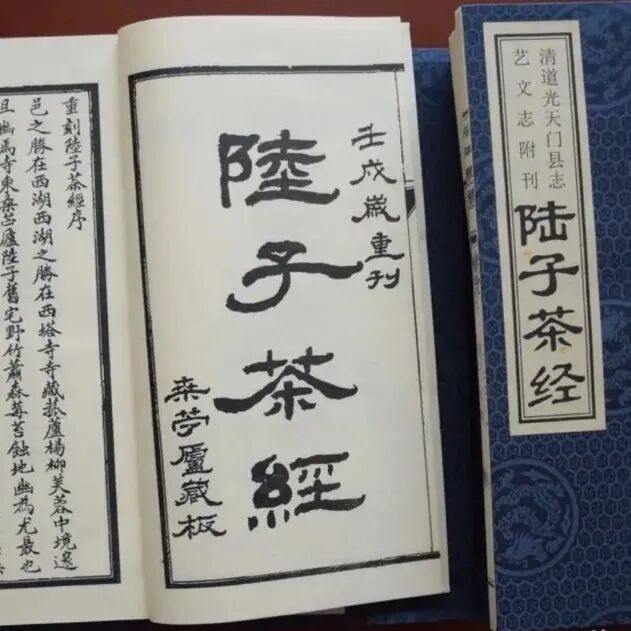 清道光天门县志
艺文志附刊
陆子茶经
壬戌歲重刊
陸子茶經
桒苧廬藏板
重刻陸子茶經序
邑之勝在西湖西湖之勝在西塔寺寺藏菰蘆楊柳芙蓉中境邃
且幽焉寺東桒苎廬陸子舊宅野竹蕭森莓苔蝕地幽為尤最也